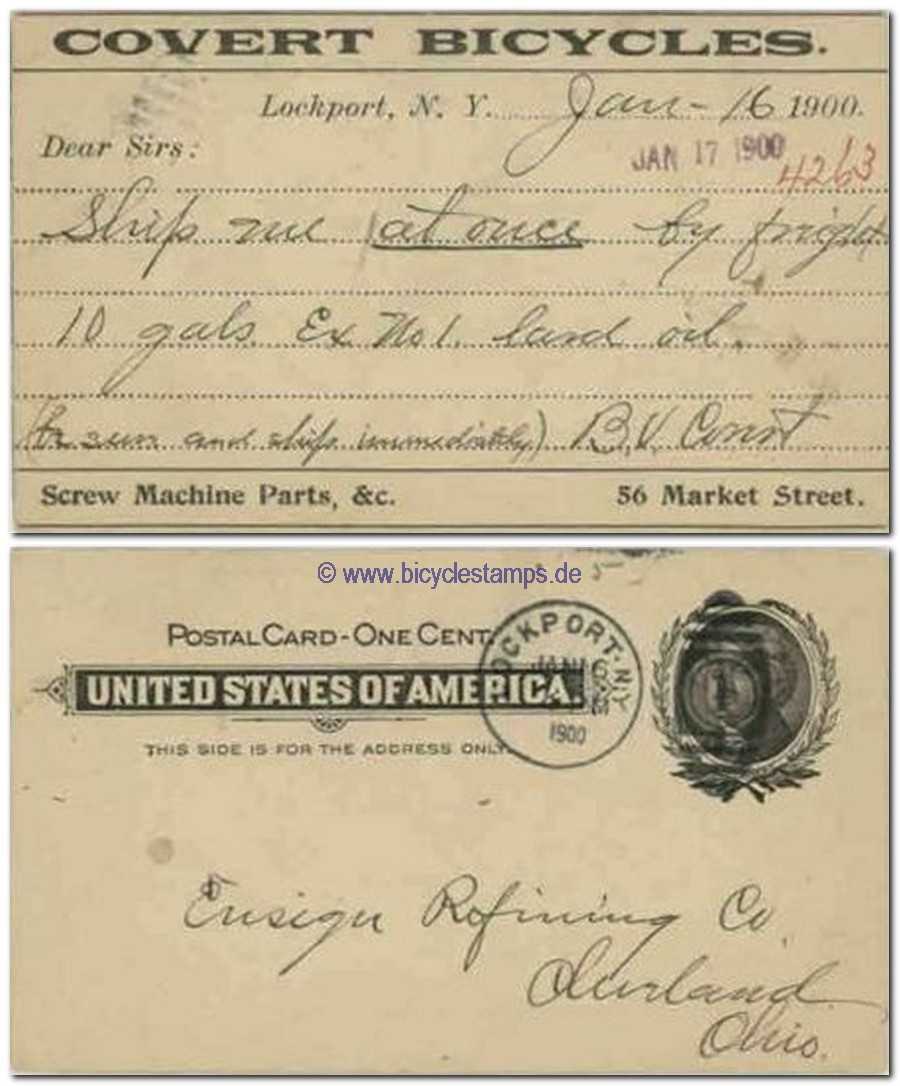 COVERT BICYCLES.
Lockport, N. Y. Jan - 16 1900.
Dear Sirs:
JAN 17 1900 4263
Ship me at once by freight
10 gals. Ex No 1. lard oil.
(Be sure and ship immediately) B.V. Covert
Screw Machine Parts, &c. 56 Market Street.
© www.bicyclestamps.de
POSTAL CARD - ONE CENT.
UNITED STATES OF AMERICA.
THIS SIDE IS FOR THE ADDRESS ONLY.
LOCKPORT. N.Y.
JAN 16
1900
1
Ensign Refining Co.
Cleveland
Ohio.